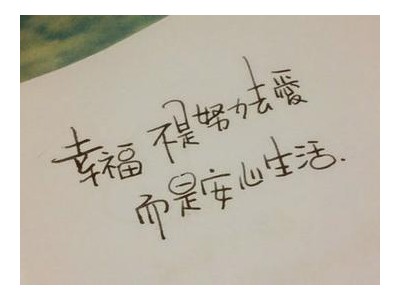 幸福 不是努力去愛
而是安心生活.